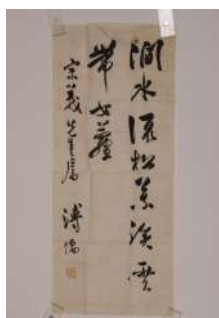 澗水流松葉溪雲
帶女蘿
宗義先生屬
溥儒